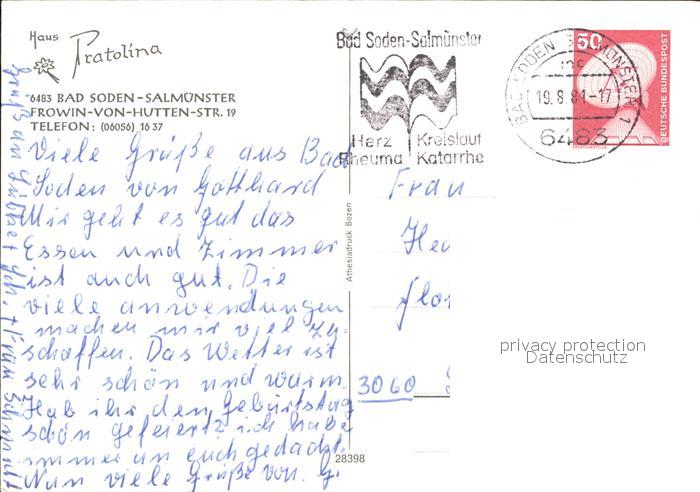 Haus
Pratolina
6483 BAD SODEN-SALMÜNSTER
FROWIN-VON-HUTTEN-STR. 19
TELEFON: (06056) 16 37
Viele Grüße aus Bad
Soden von Gotthard
Mir geht es gut das
Essen und Zimmer
ist auch gut. Die
viele anwendungen
machen mir viel zu-
schaffen. Das Wetter ist
sehr schön und warm.
Hab ihr den Geburtstag
schön gefeiert? ich habe
immer an euch gedacht.
Nun viele Grüße von. G.
Gruß an
Frau Schmitt
Athesiadruck Bozen
28398
Bad Soden-Salmünster
Herz Kreislauf
Rheuma Katarrhe
BAD SODEN-SALMÜNSTER 1
19.8.81-17
6483
50
DEUTSCHE BUNDESPOST
Frau
3060
privacy protection
Datenschutz